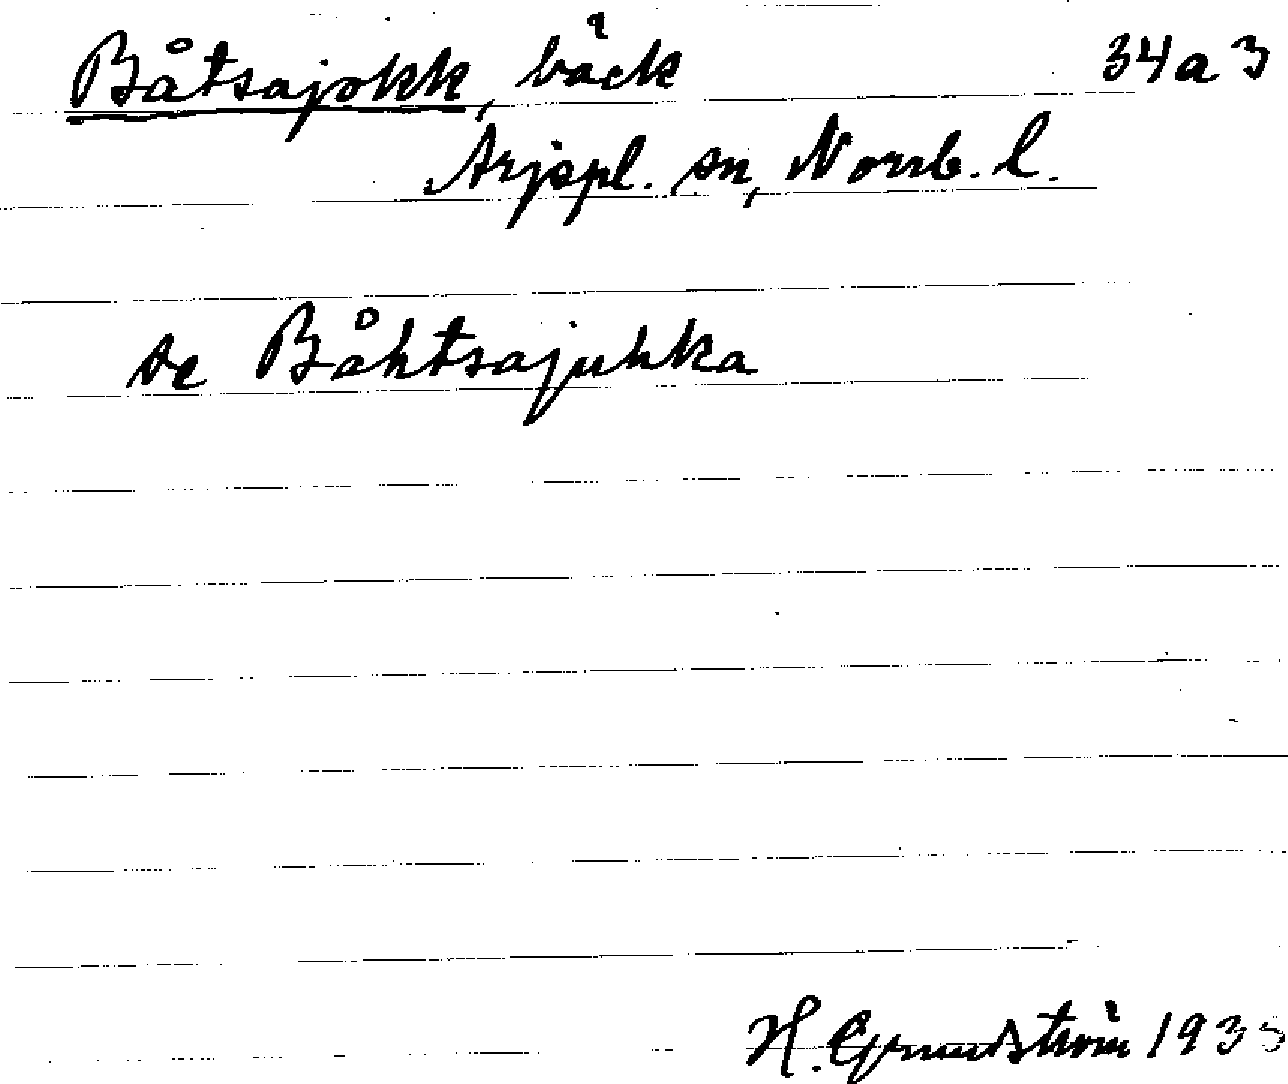 Båtsajokk, bäck 34a3
Arjepl. sn, Norrb. l.
se Båhtsajuhka
H. Grundström